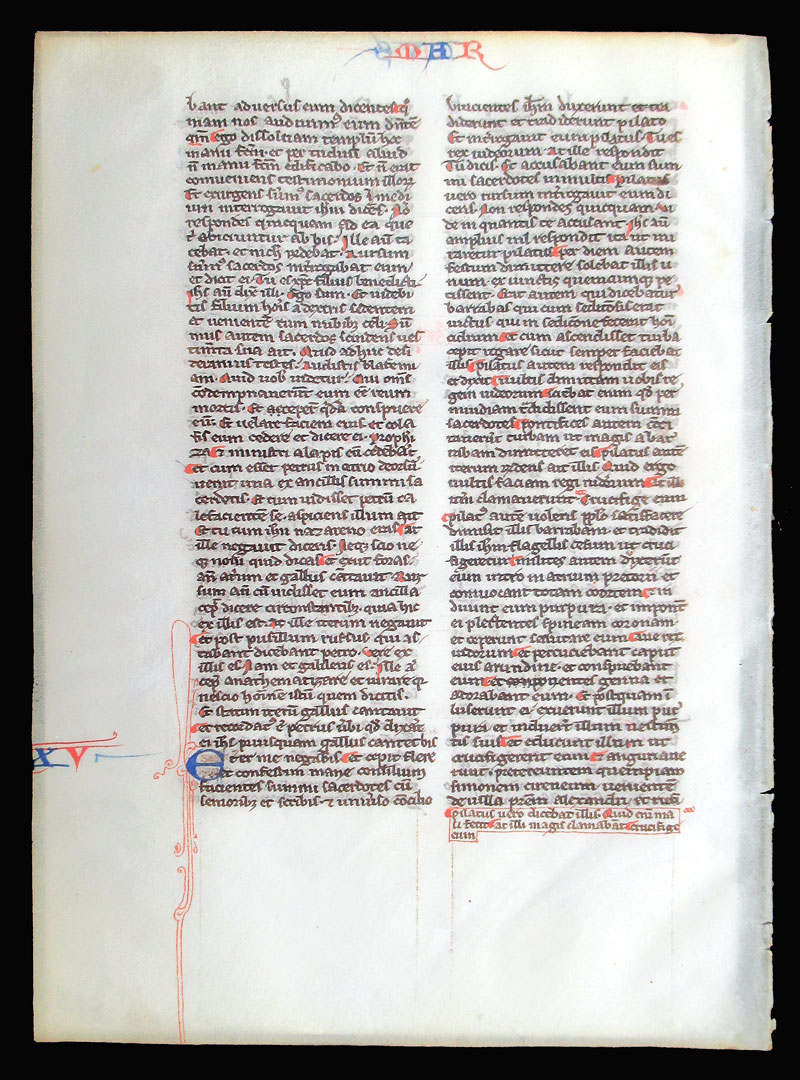 MAR
bant adversus eum dicentes q̄
niam nos audivimꝰ eum dn̄te
qm̄ Ego dissolvam templū hoc
manu fcm̄ et per tuduū aliud
ñ manu fcm̄ edificabo Et ñ erat
conveniens testimonium illoꝝ
Et exurgens sūmꝰ sacerdos ī medi
um interrogavit ihm dicēs Nō
respondes quicquam ad ea que
t̄ obiciuntur ab his Ille aū ta
cebat et nich r̄debat Rursum
sūmꝰ sacerdos int̄rogabat eum
et dicit ei Tu es xp̄c filius benedicti
ihs aū dix illi Ego sum Et videbi
tis filium hoīs a dextris sedentem
et venientē cum nubibꝰ celi Sū
mus autem sacerdos scindens ves
timta sua ait Quid adhuc desi
teramus testes Audistis blasfemi
am Quid vob videtur Qui om̄s
condempnaverūt eum eē reum
mortis Et ceperūt qdā conspuere
eū Et velare faciem eius et cola
his eum cedere et dicere ei Prophe
tiza Et ministri alapis eū cedebāt
Et cum esset petrus in atrio deorsū
venit una ex ancillis summi sa
cerdotis Et cum vidisset petrū ca
lefacientē se aspiciens illum ait
Et tu cum ihu nazareno eras At
ille negavit dicens Neqꝫ scio ne
qꝫ novi quid dicas Et exiit foras
an̄ atrium et gallus cantavit Rur
sum aū cū vidisset eum ancilla
cep̄ dicere circumstantibꝫ quia hic
ex illis est At ille iterum negavit
Et post pusillum rursus qui as
tabant dicebant petro Vere ex
illis es Nam et galileus es Ille aū
cep̄ anathematizare et iurare qꝫ
nescio hominē istū quem dicitis
Et statim iterū gallus cantavit
et recordatꝰ ē petrus verbi qd dixerat
ei ihs priusquam gallus cantet bis
XV ter me negabis Et cepit flere
Et confestim mane consilium
facientes summi sacerdotes cū
senioribꝫ et scribis et universo concilio
vincientes ihm duxerunt et tra
diderunt et tradiderunt pilato
Et int̄rogavit eum pilatus Tu es
rex iudeorum At ille respondit
Tu dicis Et accusabant eum sum
mi sacerdotes in multis Pilatus
vero rursum int̄rogavit eum di
cens Non respondes quicquam Vi
de in quantis te accusant Ihc aū
amplius nil respondit ita ut mi
raretur pilatus Per diem autem
festum dimittere solebat illis u
num ex vinctis quemcumqꝫ pe
tissent Erat autem qui dicebatur
barrabas qui cum sediciosis erat
vinctus qui in sedicione fecerat hom
cidium Et cum ascendisset turba
cepit rogare sicut semper faciebat
illis Pilatus autem respondit eis
et dixit vultis dimittam vobis re
gem iudeorum Sciebat enim qd per
invidiam tradidissent eum summi
sacerdotes Pontifices autem conci
taverūt turbam ut magis barrabam
dimitteret eis Pilatus autē
iterum r̄dens ait illis Quid ergo
vultis faciam regi iudeorum At illi
itm̄ clamaverunt Crucifige eum
Pilatꝰ autē volens pplo satisfacere
dimisit illis barrabam et tradidit
illis ihm flagellis cesum ut cruci
figeretur Milites autem duxerūt
eum intro in atrium pretorii et
convocant totam cohortem Et in
duunt eum purpura et imponūt
ei plectentes spineam coronam
et ceperunt salutare eum Ave rex
iudeorum Et percuciebant caput
eius arundine et conspuebant
eum Et ponentes genua et
adorabant eum Et postquam i
luserunt ei exuerunt illum pur
pura et induerūt illum vestimē
tis suis Et educunt illum ut
crucifigerent eum Et angariave
runt pretereuntem quempiam
simonem cireneum venientē
de villa prēm alexandri et rufi
Pilatus vero dicebat illis Quid eni ma
li fecit At illi magis clamabāt Crucifige
eum